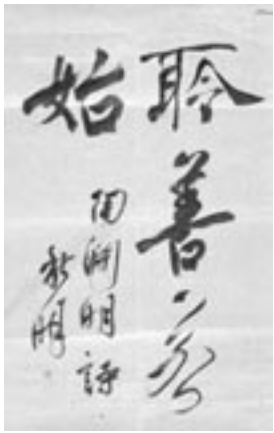 聆善若
始
陶淵明詩
秋明